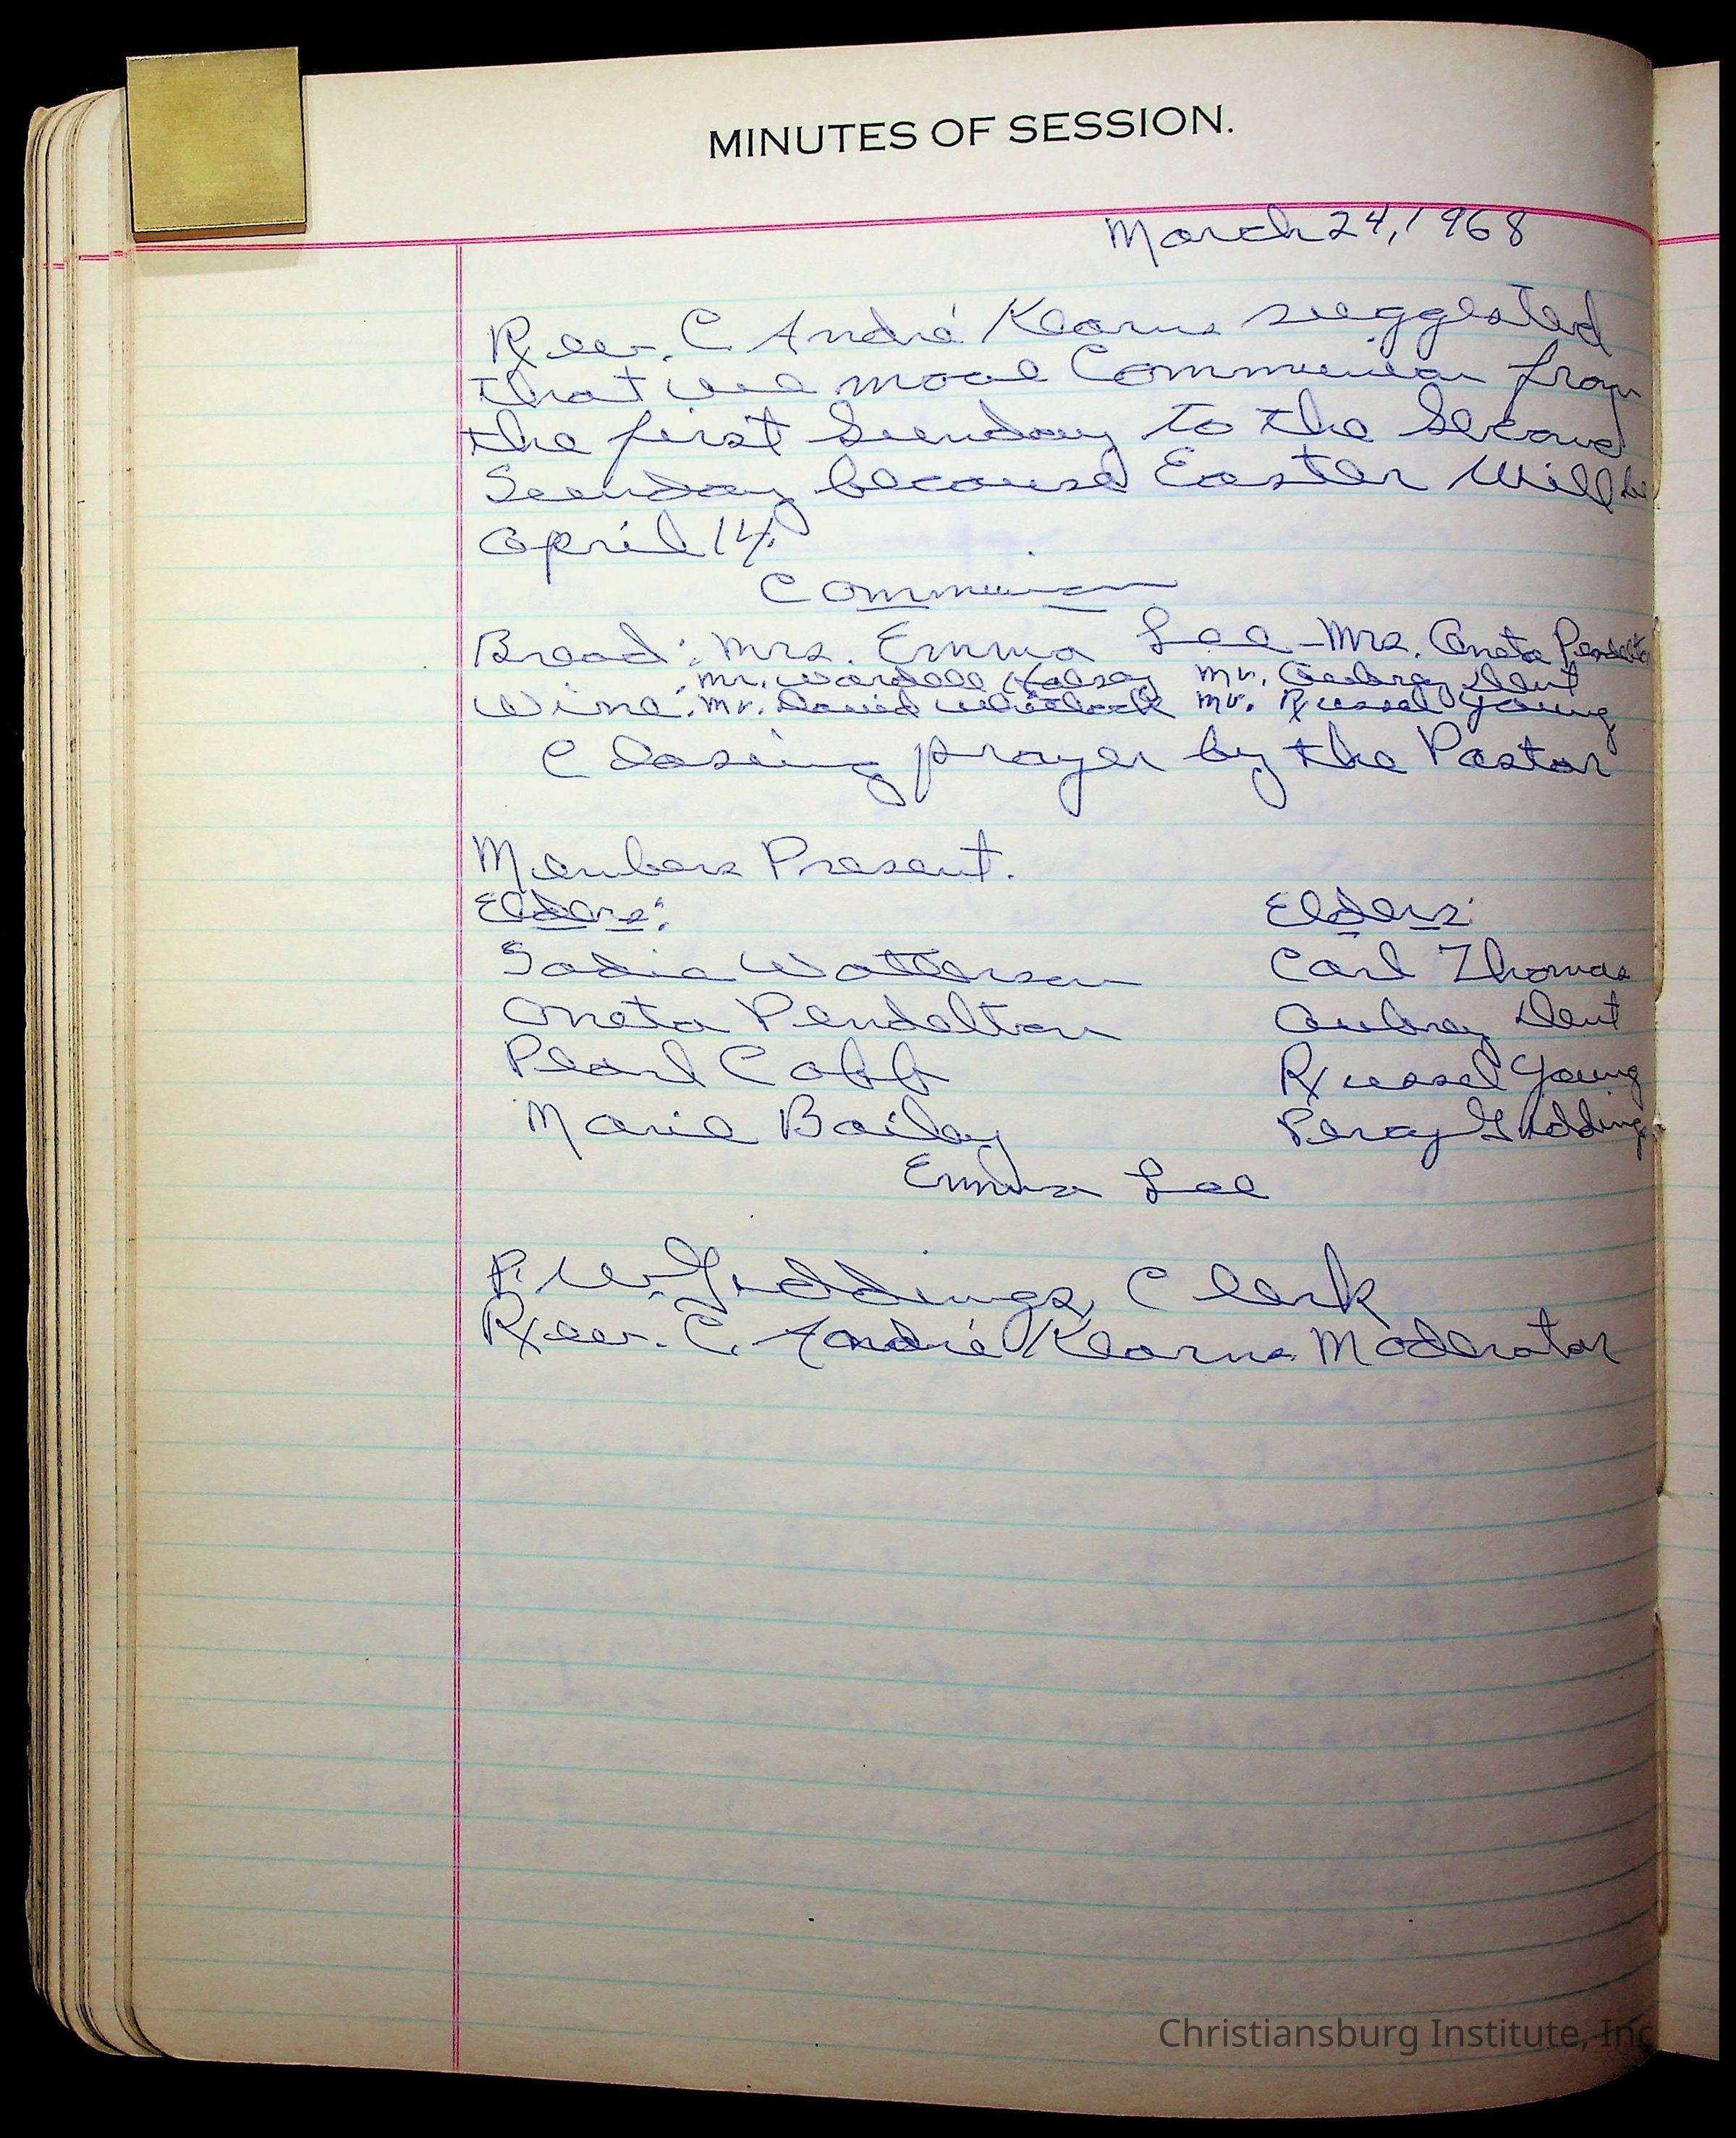 MINUTES OF SESSION.
March 24, 1968
Rev. C. André Kearns suggested
that we move Communion from
the first Sunday to the Second
Sunday because Easter will be
April 14.
Communion
Bread: Mrs. Emma Lee - Mrs. Oneta Pendelton
Mr. Wardell Mr. Aubrey Dent
Wine: Mr. David Whitlock Mr. Russel Young
Closing prayer by the Pastor
Members Present.
Elders: Elders:
Sadie Watterson Carl Thomas
Oneta Pendelton Aubrey Dent
Pearl Cobb Russel Young
Marie Bailey Percy Giddings
Emma Lee
P. W. Giddings, Clerk
Rev. C. André Kearns Moderator
Christiansburg Institute, Inc